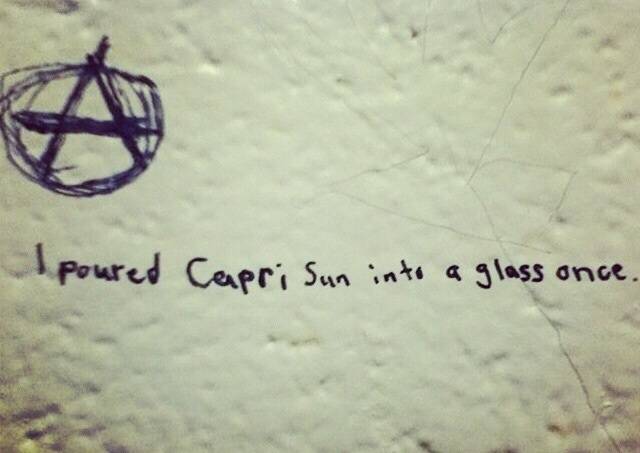 A
I poured Capri Sun into a glass once.